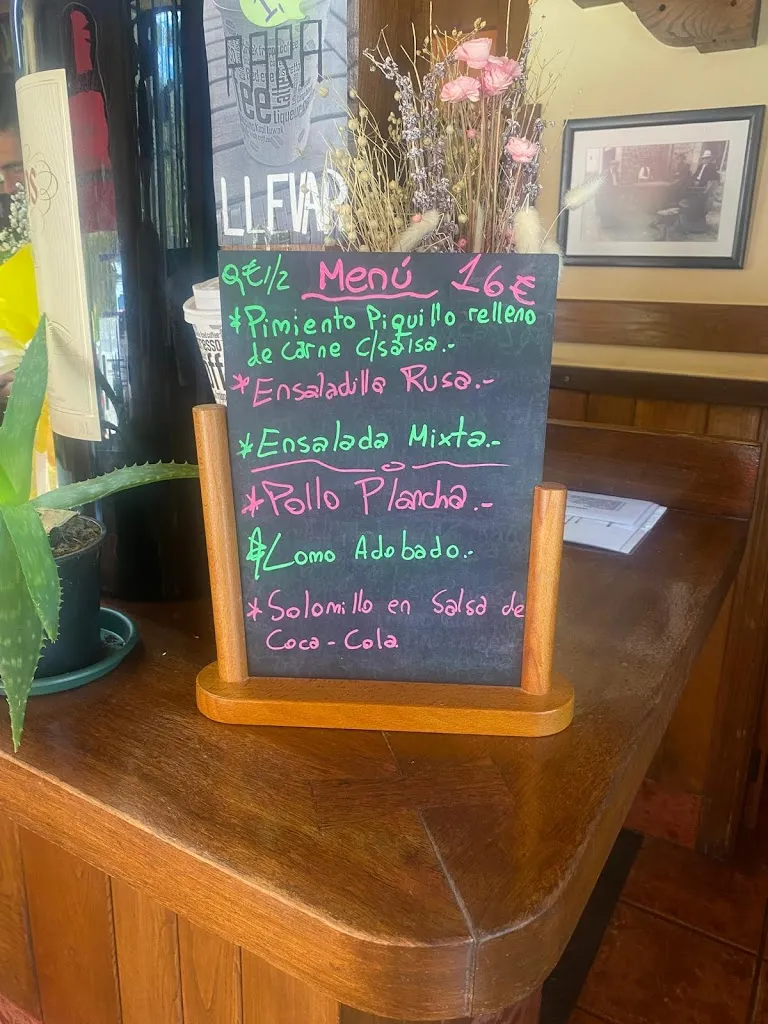 LLEVAR
9€ 1/2 Menú 16€
*Pimiento Piquillo relleno
de carne c/salsa.-
*Ensaladilla Rusa.-
*Ensalada Mixta.-
*Pollo Plancha.-
*Lomo Adobado.-
*Solomillo en Salsa de
Coca-Cola